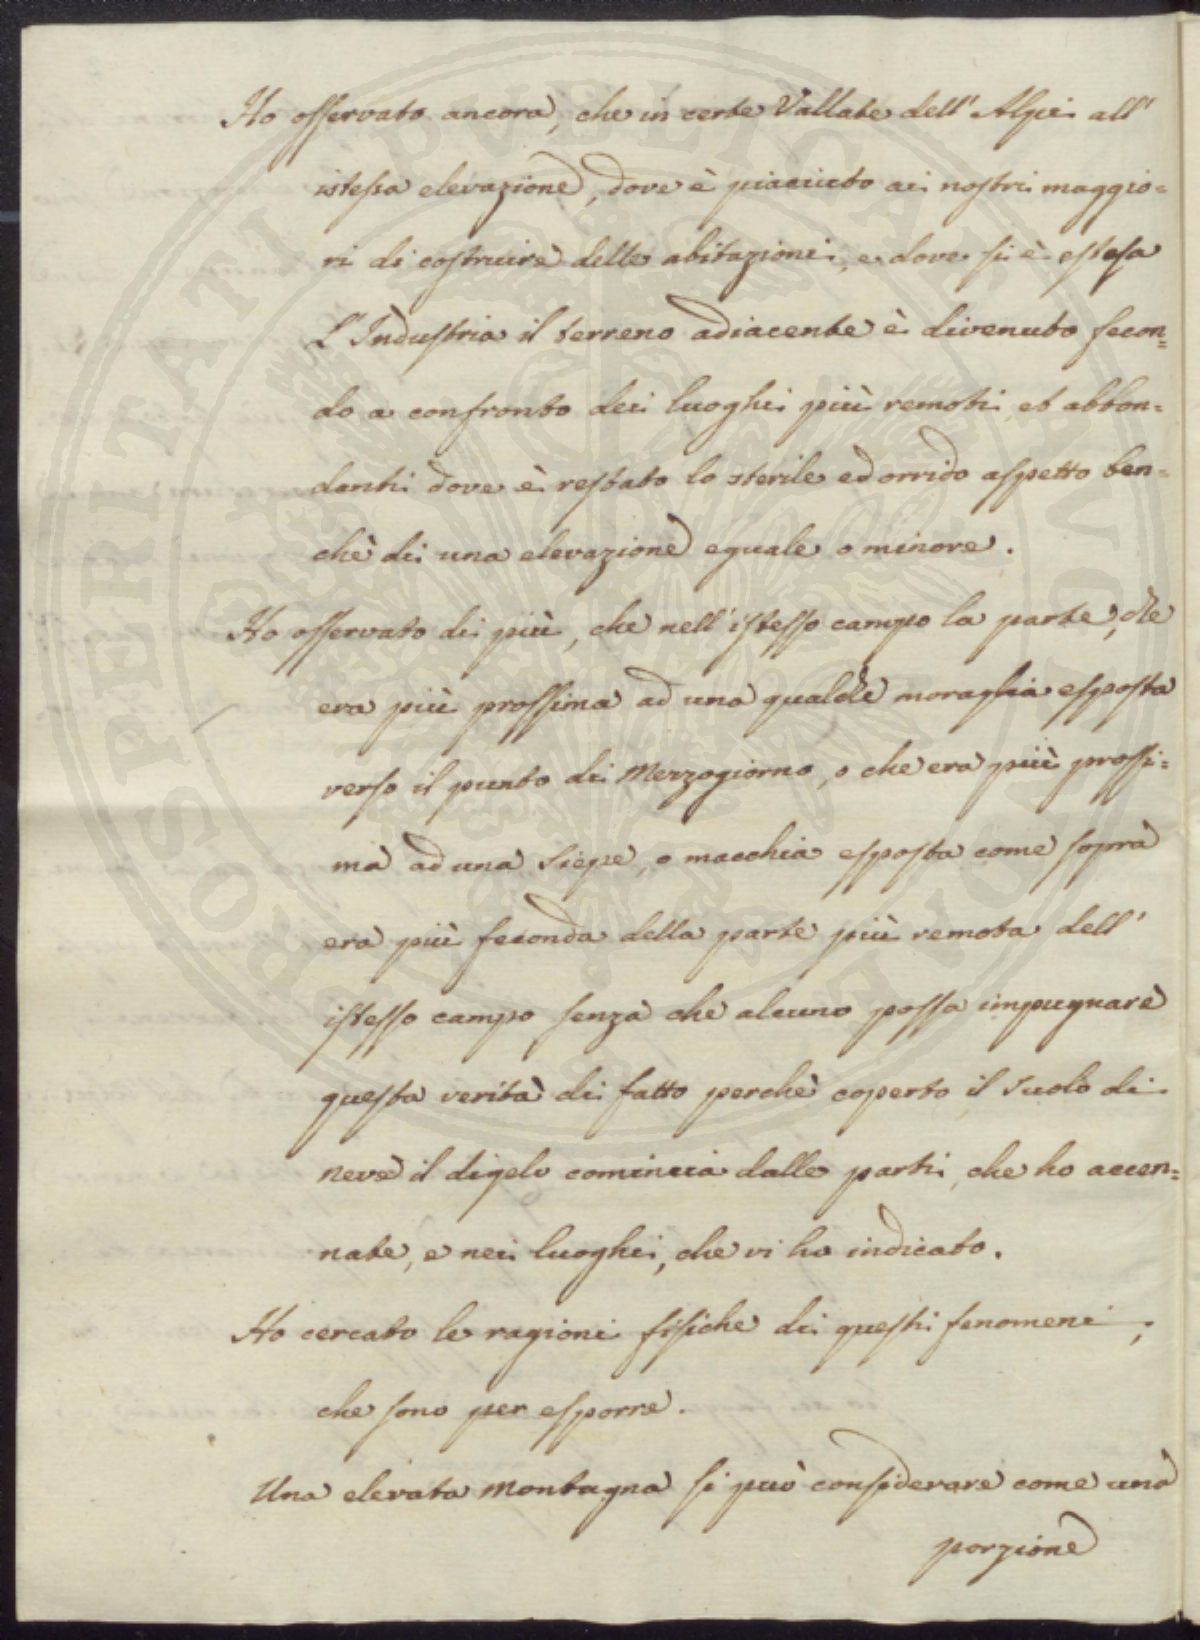 Ho osservato ancora, che in certe Vallate dell'Alpi all'
istessa elevazione, dove è piaciuto ai nostri maggio=
ri di costruire delle abitazioni, e dove si è estesa
L'Industria il terreno adiacente è divenuto fecon=
do a confronto dei luoghi più remoti et abbon=
danti dove è restato lo sterile ed orrido aspetto ben=
chè di una elevazione eguale o minore.
Ho osservato di più, che nell'istesso campo la parte, che
era più prossima ad una qualche moraglia esposta
verso il punto di Mezzogiorno, o che era più prossi=
ma ad una Siepe, o macchia esposta come sopra
era più feconda della parte più remota dell'
istesso campo senza che alcuno possa impugnare
questa verità di fatto perchè coperto il Suolo di
neve il digelo comincia dalle parti, che ho accen=
nate, e nei luoghi, che vi ho indicato.
Ho cercato le ragioni fisiche di questi fenomeni,
che sono per esporre.
Una elevata Montagna si può considerare come una
porzione
PROSPERITATI PUBLICAE AUGENDAE